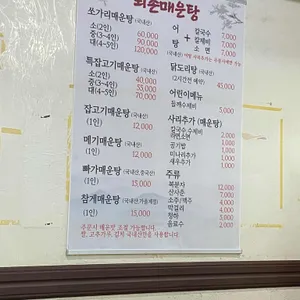 외손매운탕
쏘가리매운탕 (국내산)
소(2인) 60,000
중(3~4인) 90,000
대(4~5인) 120,000
특잡고기매운탕 (국내산)
소(2인) 40,000
중(3~4인) 55,000
대(4~5인) 70,000
잡고기매운탕 (국내산)
(1인) 12,000
메기매운탕 (국내산)
(1인) 12,000
빠가매운탕 (국내산,중국산)
(1인) 15,000
참게매운탕
(1인) 15,000
주문시 매운맛 조절 가능합니다.
쌀, 고추가루, 김치 국내산만을 사용합니다.
어탕 + 칼국수 7,000
칼제비 7,000
소면 7,000
닭도리탕 (국내산)
(2시간전 예약) 45,000
어린이메뉴
들깨수제비 5,000
사리추가
칼국수,수제비 2,000
라면소면 2,000
공기밥 1,000
미나리추가 2,000
새우추가 1,000
주류
복분자 12,000
산사춘
소주/맥주 4,000
막걸리
청하
음료수 2,000